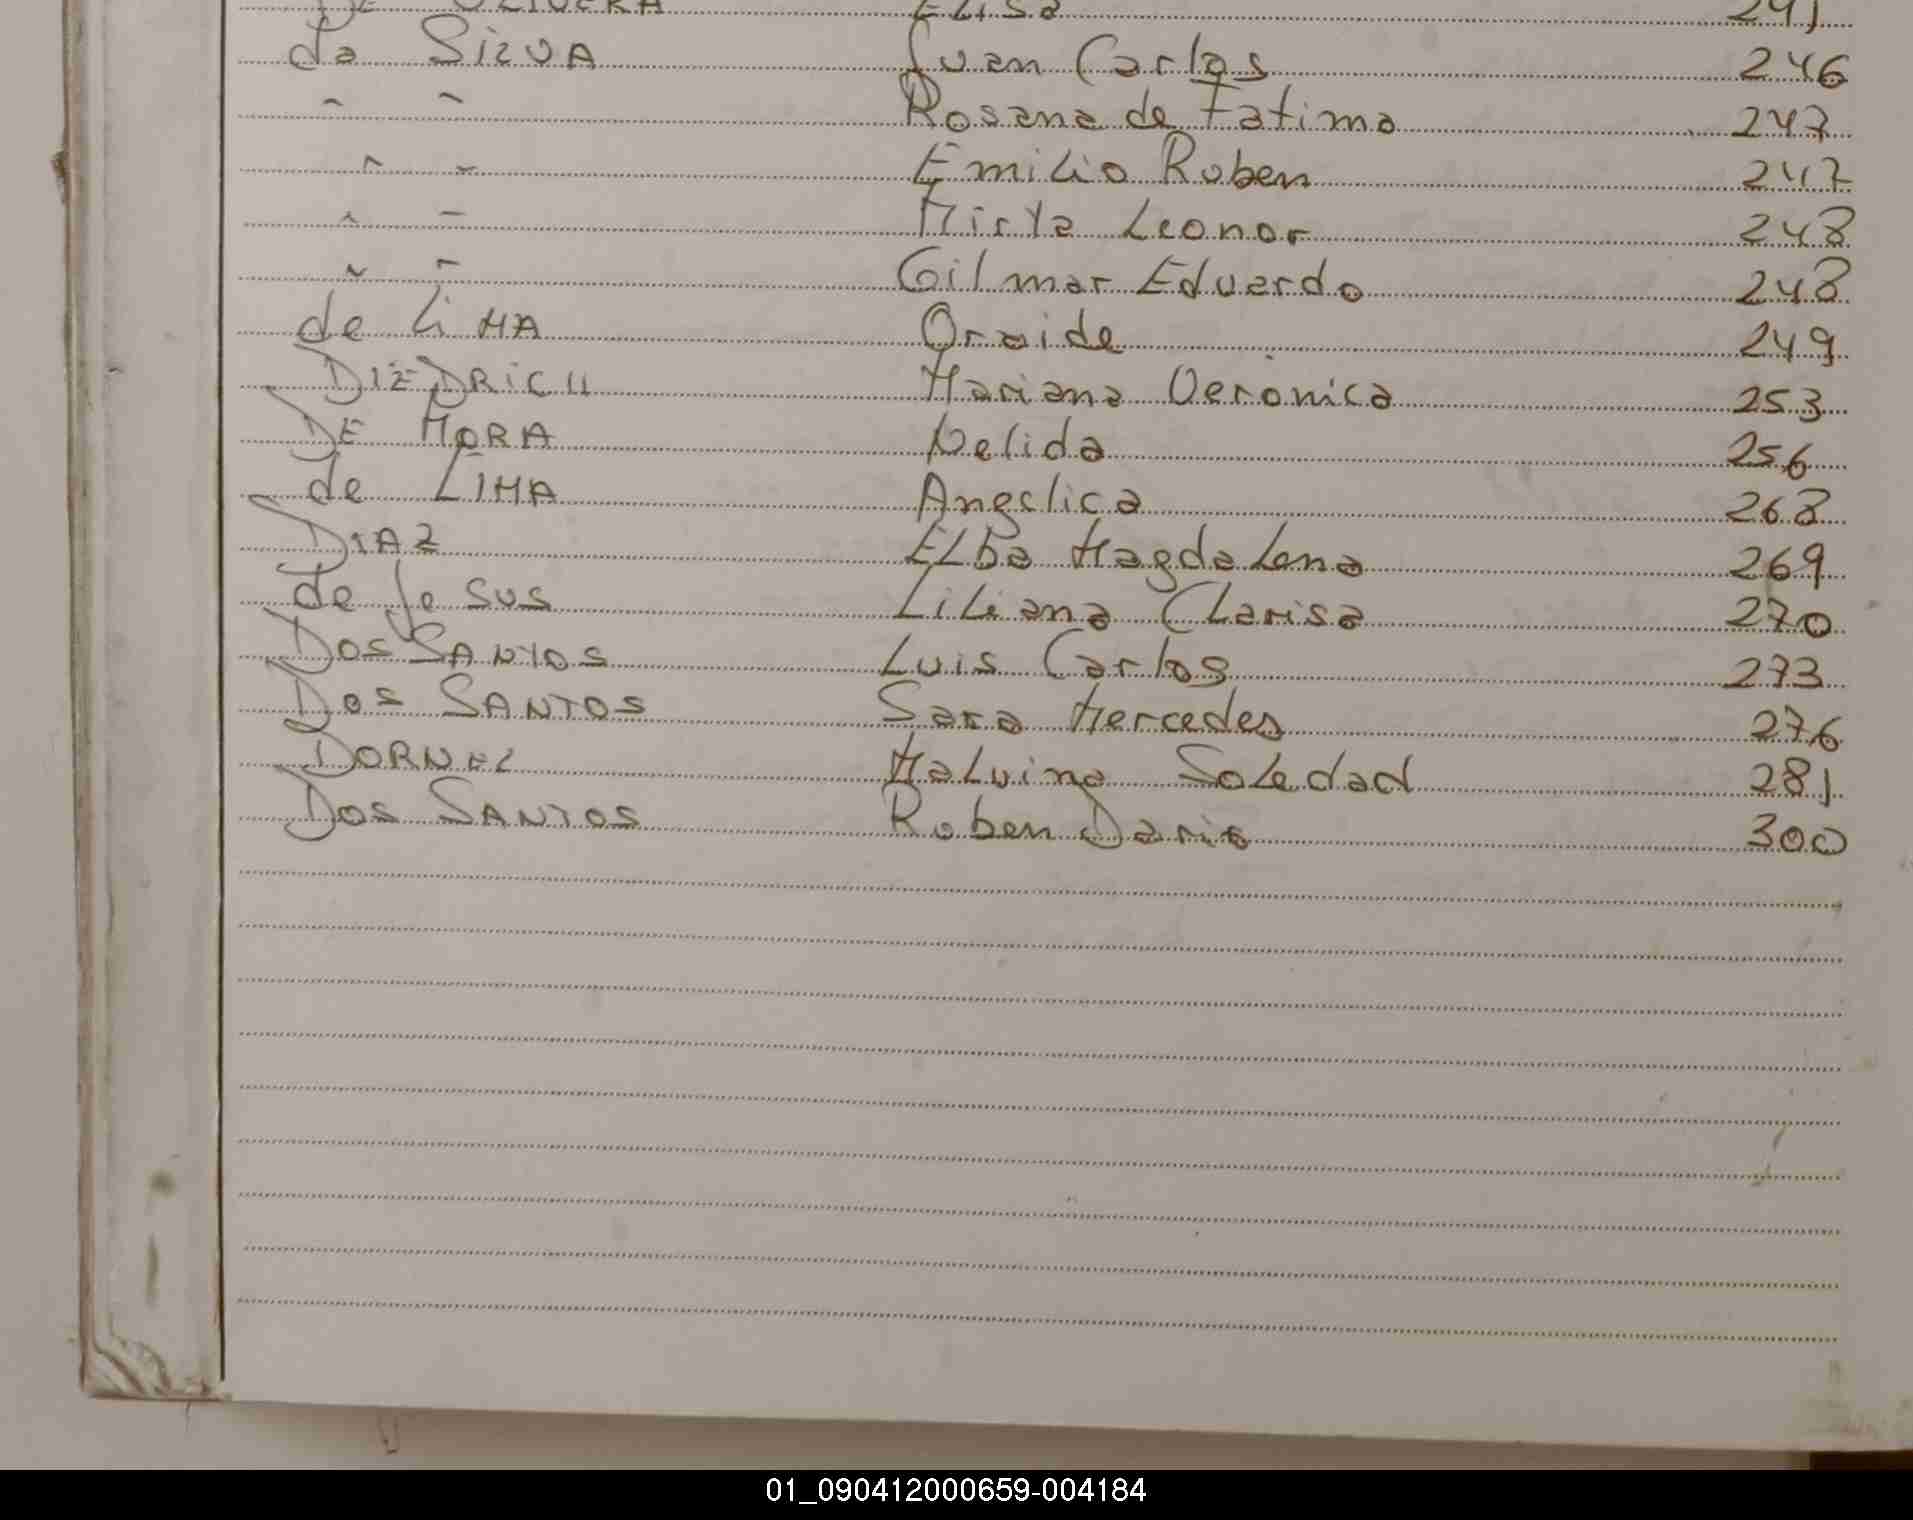 DE OLIVERA Elisa 241
da Silva Juan Carlos 246
" " Rosana de Fatima 247
" " Emilio Ruben 247
" " Mirta Leonor 248
" " Gilmar Eduardo 248
de Lima Oraide 249
DIEDRICH Mariana Verónica 253
DE MORA Nelida 256
de LIMA Angelica 268
DIAZ Elba Magdalena 269
de Jesus Liliana Clarisa 270
DOS SANTOS Luis Carlos 273
DOS SANTOS Sara Mercedes 276
DORNEL Malvina Soledad 281
DOS SANTOS Ruben Dario 300
01_090412000659-004184